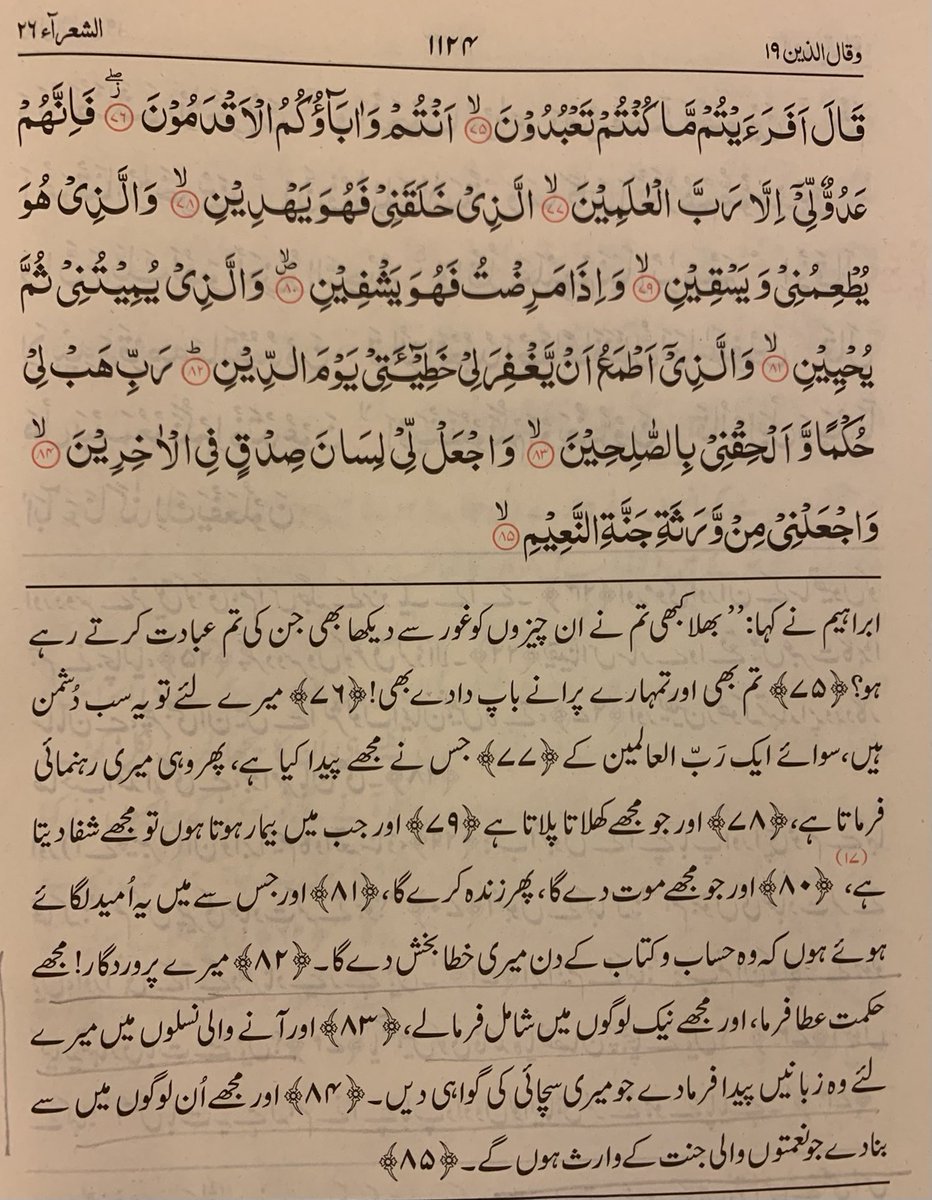 وقال الذین ۱۹
۱۱۲۴
الشعرآء ۲۶
قَالَ اَفَرَءَیْتُمْ مَّا کُنْتُمْ تَعْبُدُوْنَ ﴿۷۵﴾ اَنْتُمْ وَاٰبَآؤُکُمُ الْاَقْدَمُوْنَ ﴿۷۶﴾ فَاِنَّهُمْ
عَدُوٌّ لِّیْۤ اِلَّا رَبَّ الْعٰلَمِیْنَ ﴿۷۷﴾ الَّذِیْ خَلَقَنِیْ فَهُوَ یَهْدِیْنِ ﴿۷۸﴾ وَالَّذِیْ هُوَ
یُطْعِمُنِیْ وَیَسْقِیْنِ ﴿۷۹﴾ وَاِذَا مَرِضْتُ فَهُوَ یَشْفِیْنِ ﴿۸۰﴾ وَالَّذِیْ یُمِیْتُنِیْ ثُمَّ
یُحْیِیْنِ ﴿۸۱﴾ وَالَّذِیْۤ اَطْمَعُ اَنْ یَّغْفِرَ لِیْ خَطِیْٓئَتِیْ یَوْمَ الدِّیْنِ ﴿۸۲﴾ رَبِّ هَبْ لِیْ
حُکْمًا وَّ اَلْحِقْنِیْ بِالصّٰلِحِیْنَ ﴿۸۳﴾ وَاجْعَلْ لِّیْ لِسَانَ صِدْقٍ فِی الْاٰخِرِیْنَ ﴿۸۴﴾
وَاجْعَلْنِیْ مِنْ وَّرَثَةِ جَنَّةِ النَّعِیْمِ ﴿۸۵﴾
ابراہیم نے کہا: ’’بھلا کبھی تم نے ان چیزوں کو غور سے دیکھا بھی جن کی تم عبادت کرتے رہے
ہو؟ ﴿۷۵﴾ تم بھی اور تمہارے پرانے باپ دادے بھی! ﴿۷۶﴾ میرے لئے تو یہ سب دُشمن
ہیں، سوائے ایک رَبّ العالمین کے ﴿۷۷﴾ جس نے مجھے پیدا کیا ہے، پھر وہی میری رہنمائی
فرماتا ہے، ﴿۷۸﴾ اور جو مجھے کھلاتا پلاتا ہے ﴿۷۹﴾ اور جب میں بیمار ہوتا ہوں تو مجھے شفا دیتا
ہے، (۱۷) ﴿۸۰﴾ اور جو مجھے موت دے گا، پھر زندہ کرے گا، ﴿۸۱﴾ اور جس سے میں یہ اُمید لگائے
ہوئے ہوں کہ وہ حساب و کتاب کے دن میری خطا بخش دے گا۔ ﴿۸۲﴾ میرے پروردگار! مجھے
حکمت عطا فرما، اور مجھے نیک لوگوں میں شامل فرما لے، ﴿۸۳﴾ اور آنے والی نسلوں میں میرے
لئے وہ زبانیں پیدا فرما دے جو میری سچائی کی گواہی دیں۔ ﴿۸۴﴾ اور مجھے اُن لوگوں میں سے
بنا دے جو نعمتوں والی جنت کے وارث ہوں گے۔ ﴿۸۵﴾